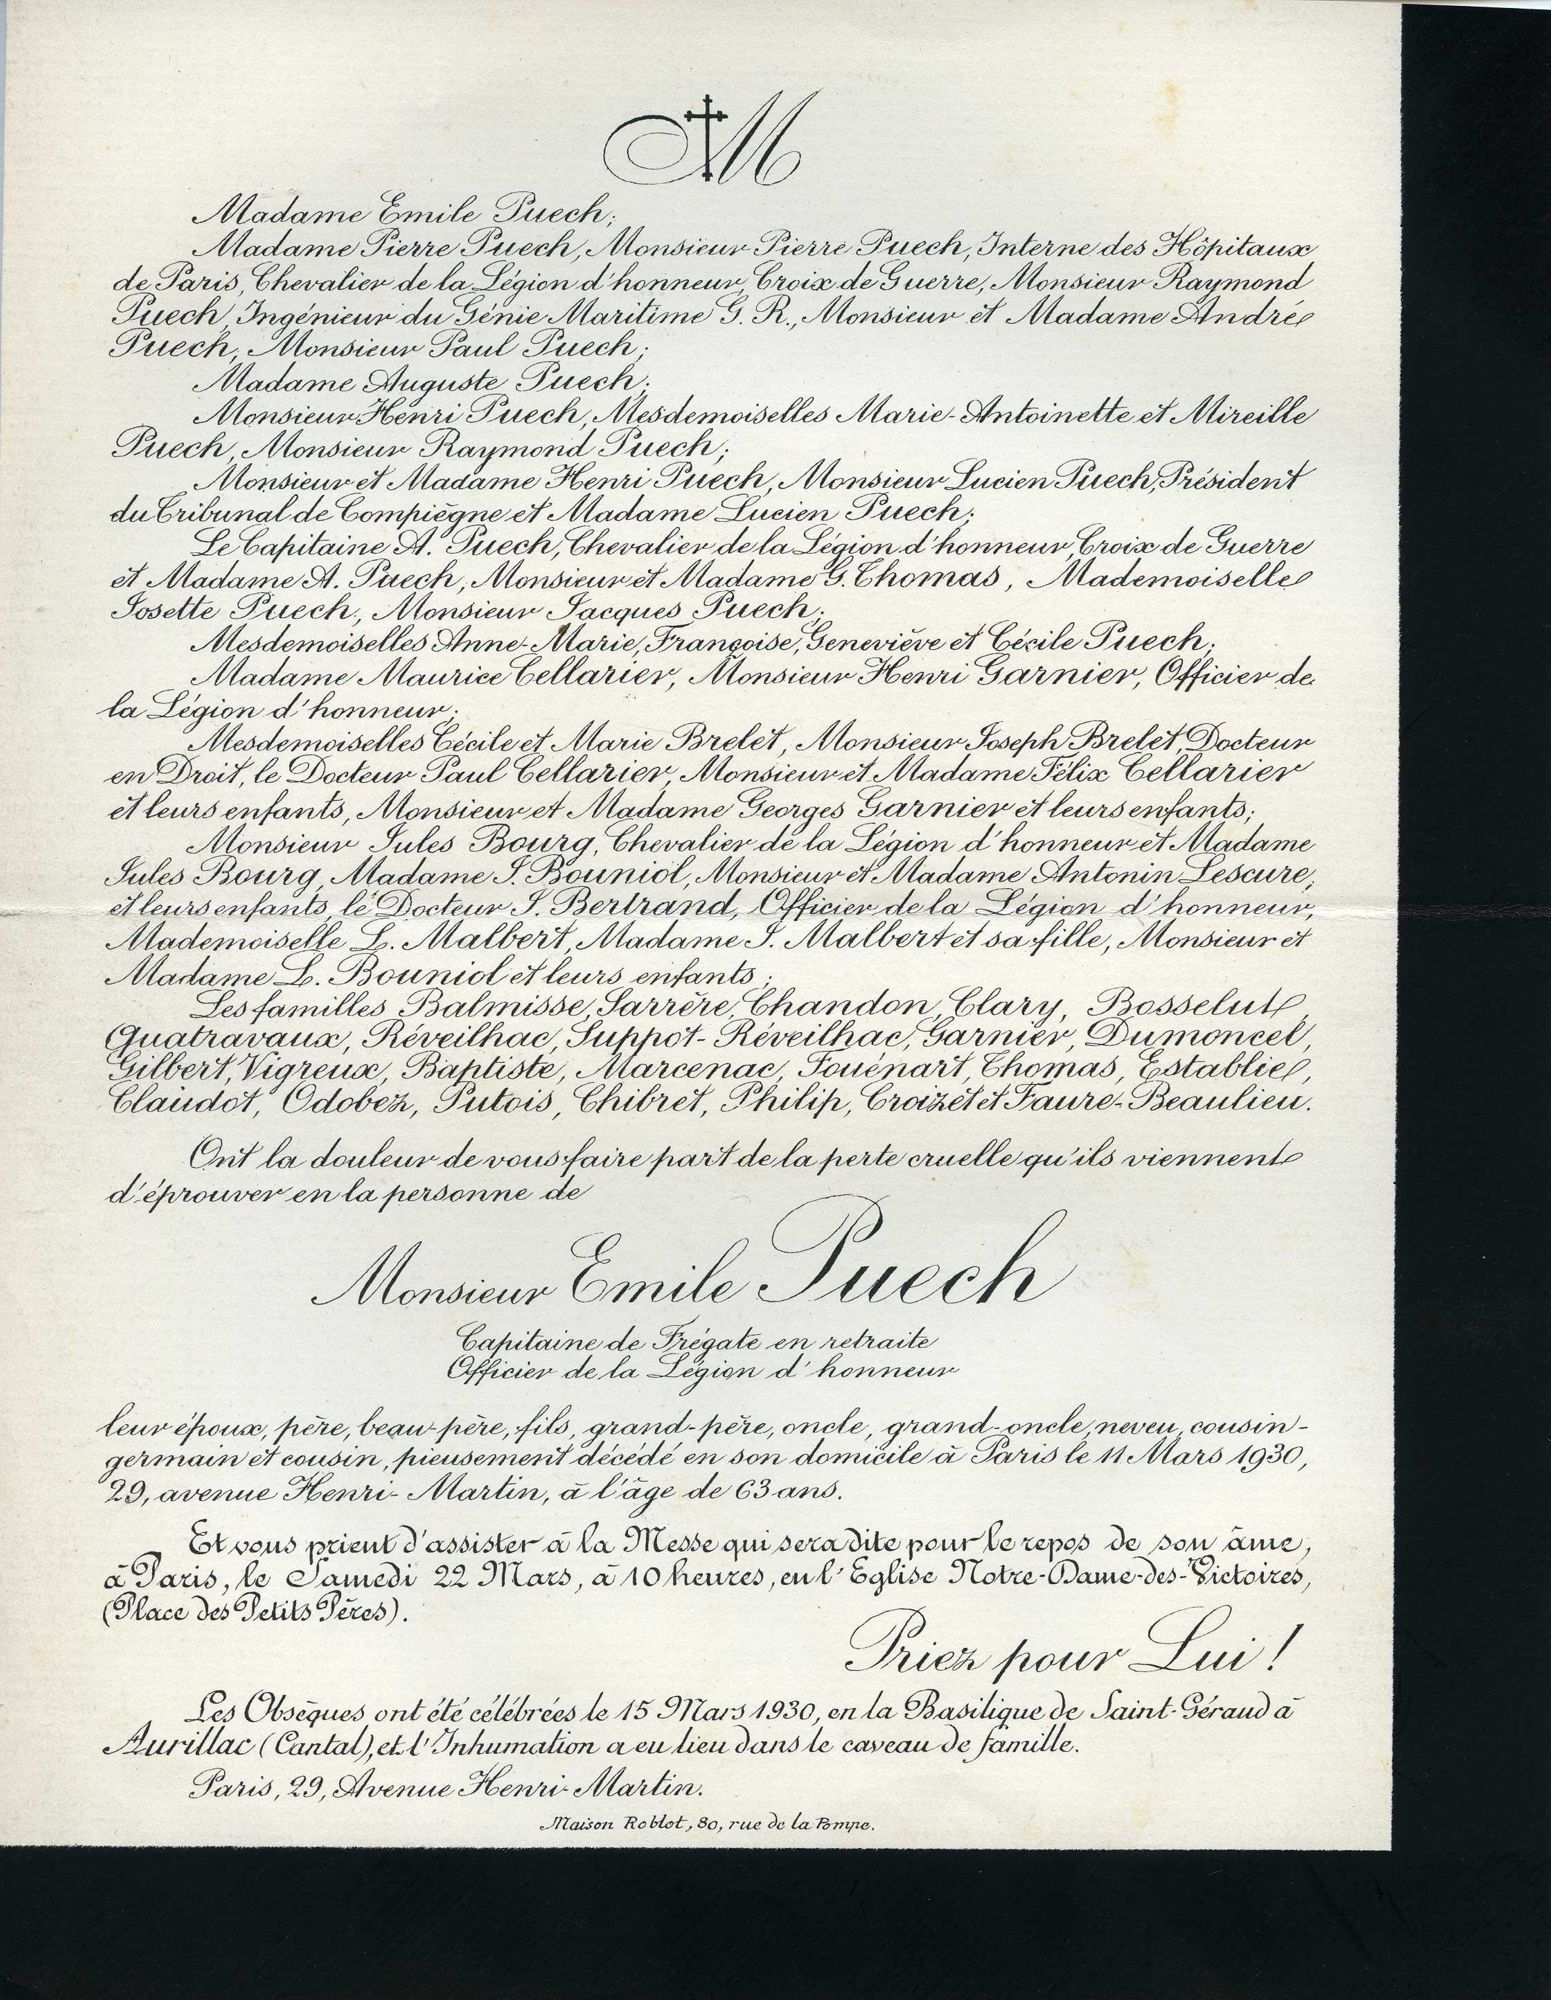 M
Madame Emile Puech;
Madame Pierre Puech, Monsieur Pierre Puech, Interne des Hôpitaux
de Paris, Chevalier de la Légion d'honneur, Croix de Guerre, Monsieur Raymond
Puech, Ingénieur du Génie Maritime G. R., Monsieur et Madame André
Puech, Monsieur Paul Puech;
Madame Auguste Puech;
Monsieur Henri Puech, Mesdemoiselles Marie-Antoinette et Mireille
Puech, Monsieur Raymond Puech;
Monsieur et Madame Henri Puech, Monsieur Lucien Puech, Président
du Tribunal de Compiègne et Madame Lucien Puech;
Le Capitaine A. Puech, Chevalier de la Légion d'honneur, Croix de Guerre
et Madame A. Puech, Monsieur et Madame G. Thomas, Mademoiselle
Josette Puech, Monsieur Jacques Puech;
Mesdemoiselles Anne-Marie, Françoise, Geneviève et Cécile Puech;
Madame Maurice Cellarier, Monsieur Henri Garnier, Officier de
la Légion d'honneur;
Mesdemoiselles Cécile et Marie Brelet, Monsieur Joseph Brelet, Docteur
en Droit, le Docteur Paul Cellarier, Monsieur et Madame Félix Cellarier
et leurs enfants, Monsieur et Madame Georges Garnier et leurs enfants;
Monsieur Jules Bourg, Chevalier de la Légion d'honneur et Madame
Jules Bourg, Madame J. Bouniol, Monsieur et Madame Antonin Lescure,
et leurs enfants, le Docteur J. Bertrand, Officier de la Légion d'honneur,
Mademoiselle L. Malbert, Madame J. Malbert et sa fille, Monsieur et
Madame L. Bouniol et leurs enfants;
Les familles Balmisse, Sarrère, Chandon, Clary, Bosselut,
Quatravaux, Réveilhac, Suppot-Réveilhac, Garnier, Dumoncel,
Gilbert, Vigreux, Baptiste, Marcenac, Fouénart, Thomas, Establie,
Claudot, Odobez, Putois, Chibret, Philip, Croizet et Faure-Beaulieu.
Ont la douleur de vous faire part de la perte cruelle qu'ils viennent
d'éprouver en la personne de
Monsieur Emile Puech
Capitaine de Frégate en retraite
Officier de la Légion d'honneur
leur époux, père, beau-père, fils, grand-père, oncle, grand-oncle, neveu, cousin-
germain et cousin, pieusement décédé en son domicile à Paris le 11 Mars 1930,
29, avenue Henri-Martin, à l'âge de 63 ans.
Et vous prient d'assister à la Messe qui sera dite pour le repos de son âme,
à Paris, le Samedi 22 Mars, à 10 heures, en l'Eglise Notre-Dame-des-Victoires,
(Place des Petits Pères).
Priez pour Lui !
Les Obsèques ont été célébrées le 15 Mars 1930, en la Basilique de Saint-Géraud à
Aurillac (Cantal), et l'Inhumation a eu lieu dans le caveau de famille.
Paris, 29, Avenue Henri-Martin.
Maison Roblot, 80, rue de la Pompe.